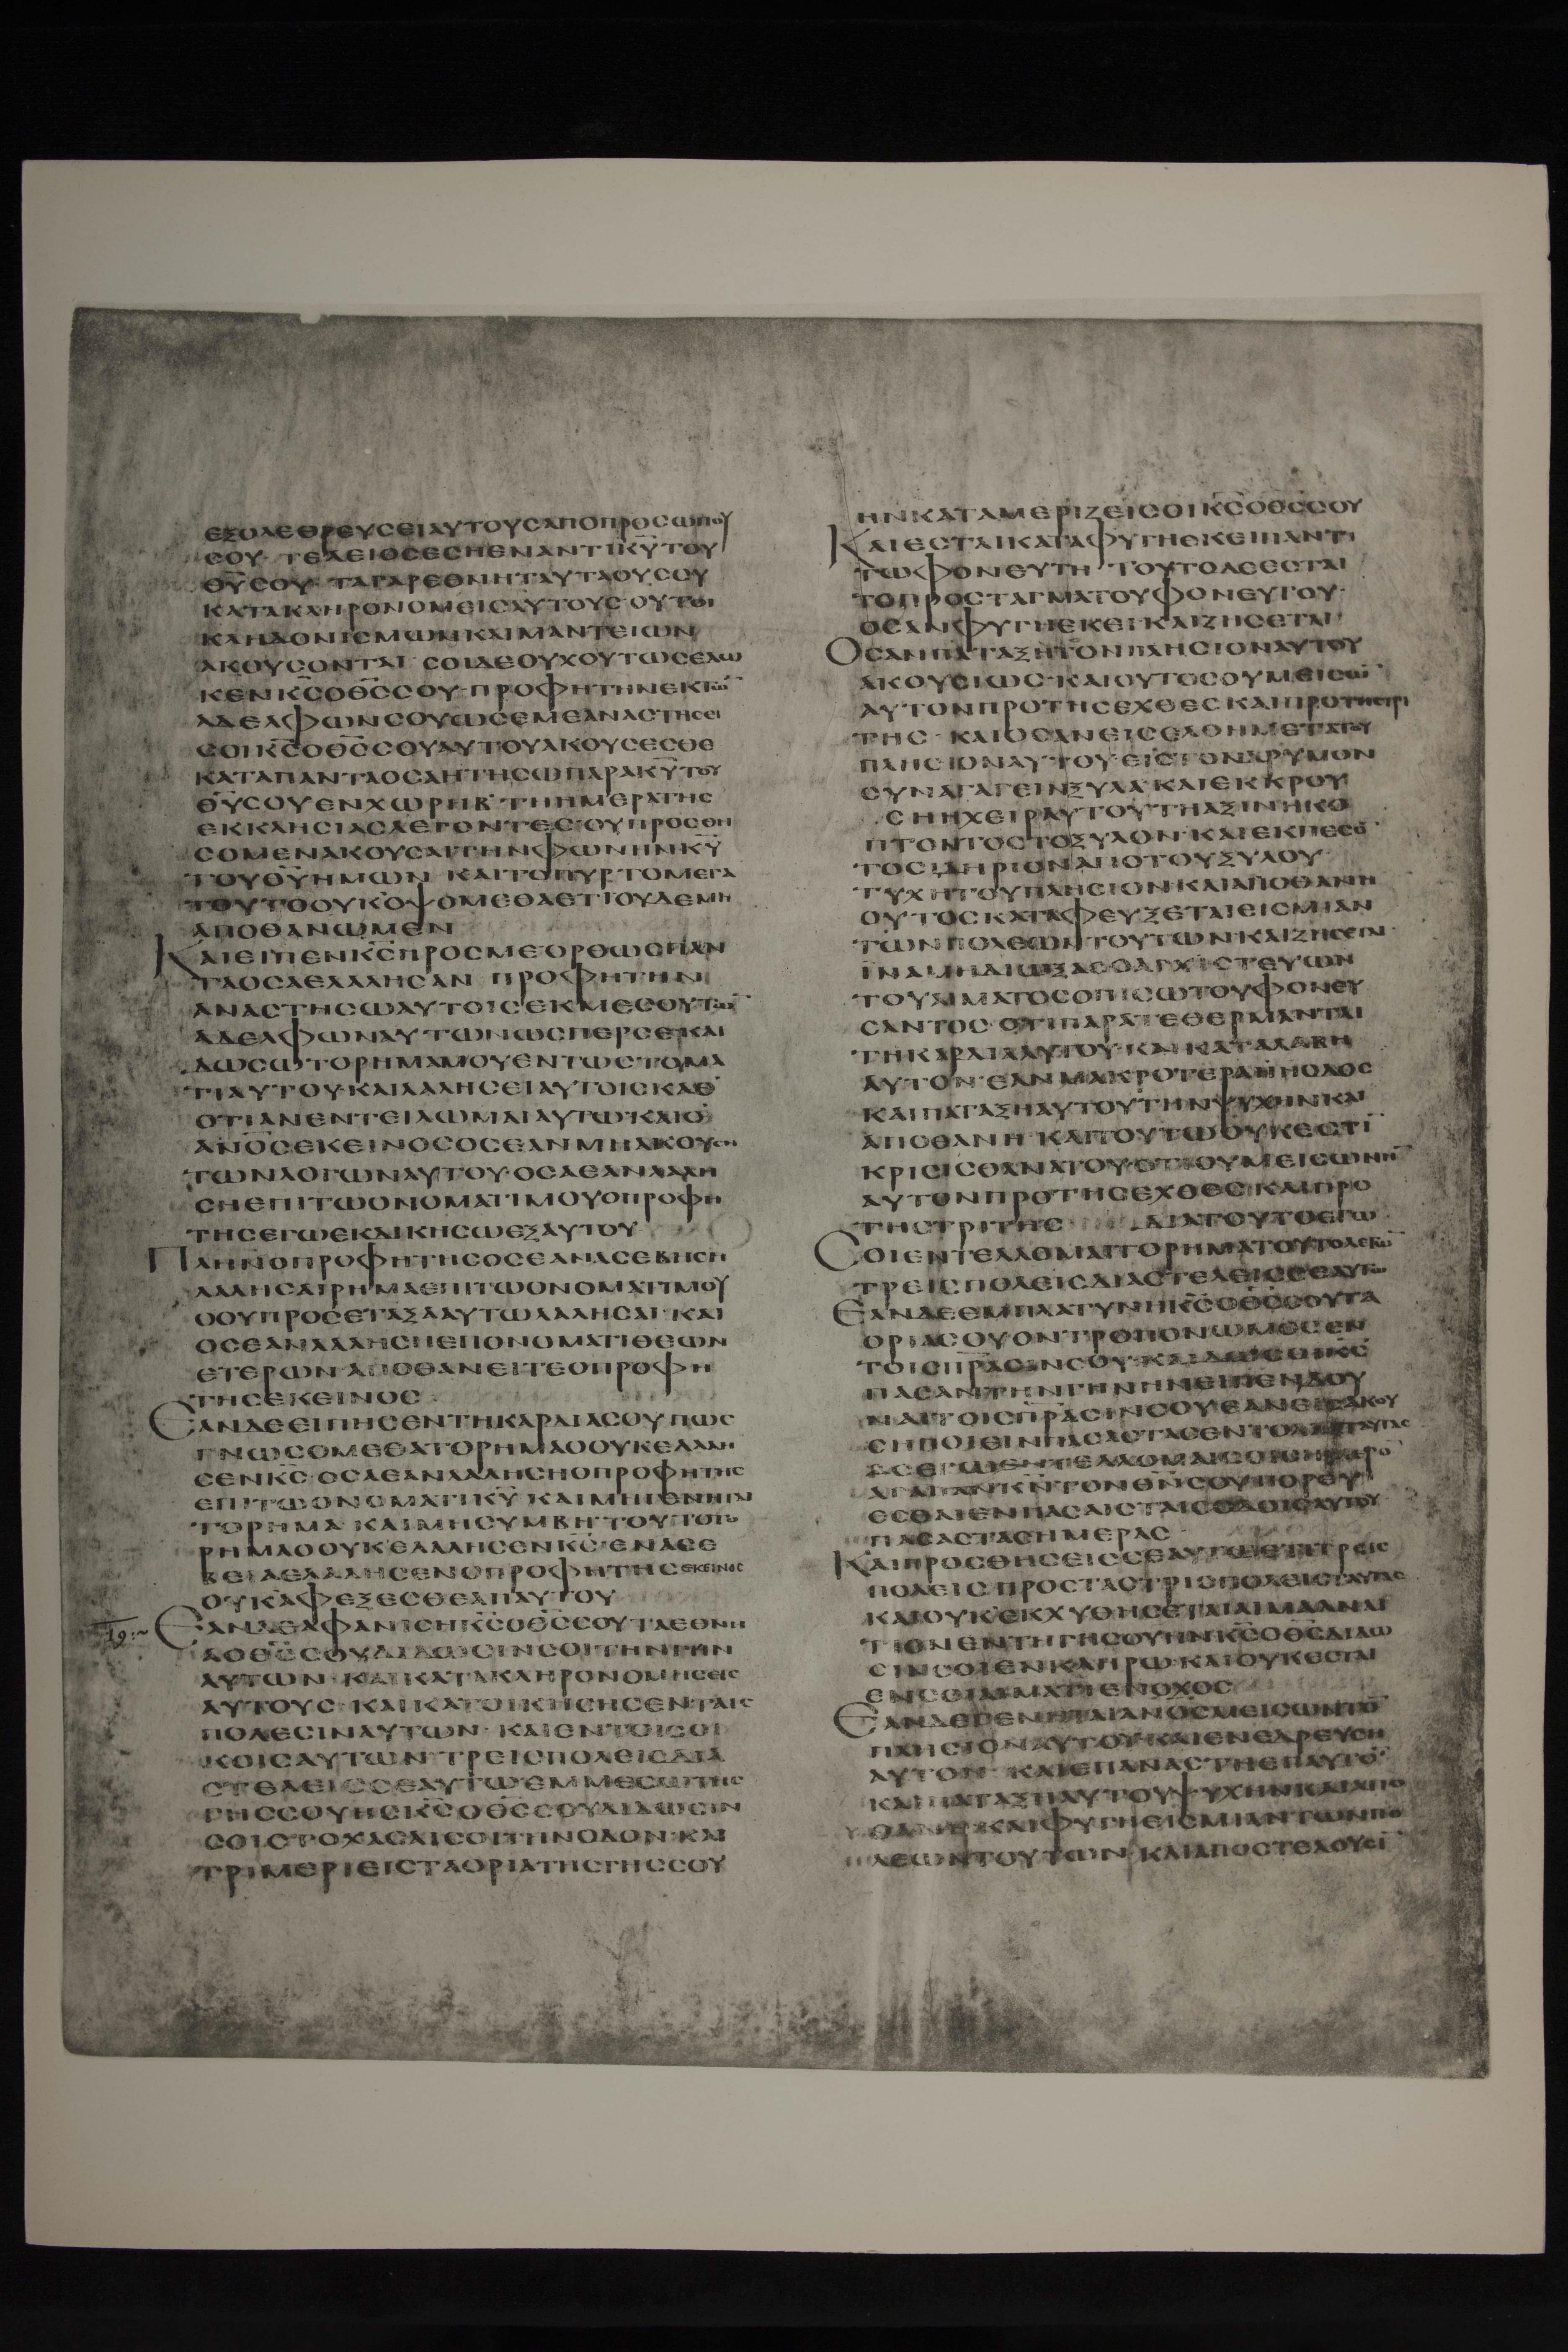 ΕΞΟΛΕΘΡΕΥΣΕΙΑΥΤΟΥΣΑΠΟΠΡΟΣΩΠΟΥ
ΣΟΥ· ΤΕΛΕΙΟΣΕΣΗΕΝΑΝΤΙΚ̅Υ̅ΤΟΥ
Θ̅Υ̅ΣΟΥ· ΤΑΓΑΡΕΘΝΗΤΑΥΤΑΟΥΣΟΥ
ΚΑΤΑΚΛΗΡΟΝΟΜΕΙΣΑΥΤΟΥΣ·ΟΥΤΟΙ
ΚΛΗΔΟΝΙΣΜΩΝΚΑΙΜΑΝΤΕΙΩΝ
ΑΚΟΥΣΟΝΤΑΙ· ΣΟΙΔΕΟΥΧΟΥΤΩΣΕΔΩ
ΚΕΝΚ̅Σ̅ΟΘ̅Σ̅ΣΟΥ·ΠΡΟΦΗΤΗΝΕΚΤΩ̅
ΑΔΕΛΦΩΝΣΟΥΩΣΕΜΕΑΝΑΣΤΗΣΕΙ
ΣΟΙΚ̅Σ̅ΟΘ̅Σ̅ΣΟΥΑΥΤΟΥΑΚΟΥΣΕΣΘΕ
ΚΑΤΑΠΑΝΤΑΟΣΑΗΤΗΣΩΠΑΡΑΚ̅Υ̅ΤΟΥ
Θ̅Υ̅ΣΟΥΕΝΧΩΡΗΒ·ΤΗΗΜΕΡΑΤΗΣ
ΕΚΚΛΗΣΙΑΣΛΕΓΟΝΤΕΣ·ΟΥΠΡΟΣΘΗ
ΣΟΜΕΝΑΚΟΥΣΑΙΤΗΝΦΩΝΗΝΚ̅Υ̅
ΤΟΥΘ̅Υ̅ΗΜΩΝ ΚΑΙΤΟΠΥΡΤΟΜΕΓΑ
ΤΟΥΤΟΟΥΚΟΨΟΜΕΘΑΕΤΙΟΥΔΕΜΗ
ΑΠΟΘΑΝΩΜΕΝ
ΚΑΙΕΙΠΕΝΚ̅Σ̅ΠΡΟΣΜΕΟΡΘΩΣΠΑΝ
ΤΑΟΣΑΕΛΑΛΗΣΑΝ ΠΡΟΦΗΤΗΝ
ΑΝΑΣΤΗΣΩΑΥΤΟΙΣΕΚΜΕΣΟΥΤΩ̅
ΑΔΕΛΦΩΝΑΥΤΩΝΩΣΠΕΡΣΕΚΑΙ
ΔΩΣΩΤΟΡΗΜΑΜΟΥΕΝΤΩΣΤΟΜΑ
ΤΙΑΥΤΟΥ·ΚΑΙΛΑΛΗΣΕΙΑΥΤΟΙΣΚΑΘ
ΟΤΙΑΝΕΝΤΕΙΛΩΜΑΙΑΥΤΩ·ΚΑΙΟ
Α̅Ν̅Ο̅Σ̅ΕΚΕΙΝΟΣΟΣΕΑΝΜΗΑΚΟΥΣΗ
ΤΩΝΛΟΓΩΝΑΥΤΟΥ·ΟΣΑΕΑΝΛΑΛΗ
ΣΗΕΠΙΤΩΟΝΟΜΑΤΙΜΟΥΟΠΡΟΦΗ
ΤΗΣΕΓΩΕΚΔΙΚΗΣΩΕΞΑΥΤΟΥ
ΠΛΗΝΟΠΡΟΦΗΤΗΣΟΣΕΑΝΑΣΕΒΗΣΗ
ΛΑΛΗΣΑΙΡΗΜΑΕΠΙΤΩΟΝΟΜΑΤΙΜΟΥ
ΟΟΥΠΡΟΣΕΤΑΞΑΑΥΤΩΛΑΛΗΣΑΙ·ΚΑΙ
ΟΣΕΑΝΛΑΛΗΣΗΕΠΟΝΟΜΑΤΙΘΕΩΝ
ΕΤΕΡΩΝ·ΑΠΟΘΑΝΕΙΤΕΟΠΡΟΦΗ
ΤΗΣΕΚΕΙΝΟΣ·
ΕΑΝΔΕΕΙΠΗΣΕΝΤΗΚΑΡΔΙΑΣΟΥΠΩΣ
ΓΝΩΣΟΜΕΘΑΤΟΡΗΜΑΟΟΥΚΕΛΑΛΗ
ΣΕΝΚ̅Σ̅·ΟΣΑΕΑΝΛΑΛΗΣΗΟΠΡΟΦΗΤΗΣ
ΕΠΙΤΩΟΝΟΜΑΤΙΚ̅Υ̅ ΚΑΙΜΗΓΕΝΗΤΑΙ
ΤΟΡΗΜΑ·ΚΑΙΜΗΣΥΜΒΗ·ΤΟΥΤΟΤΟ
ΡΗΜΑΟΟΥΚΕΛΑΛΗΣΕΝΚ̅Σ̅·ΕΝΑΣΕ
ΒΕΙΑΕΛΑΛΗΣΕΝΟΠΡΟΦΗΤΗΣΕΚΕΙΝΟΣ
ΟΥΚΑΦΕΞΕΣΘΕΑΠΑΥΤΟΥ
19:~ ΕΑΝΔΕΑΦΑΝΙΣΗΚ̅Σ̅ΟΘ̅Σ̅ΣΟΥΤΑΕΘΝΗ
ΑΟΘ̅Σ̅ΣΟΥΔΙΔΩΣΙΝΣΟΙΤΗΝΓΗΝ
ΑΥΤΩΝ·ΚΑΙΚΑΤΑΚΛΗΡΟΝΟΜΗΣΕΙΣ
ΑΥΤΟΥΣ·ΚΑΙΚΑΤΟΙΚΗΣΗΣΕΝΤΑΙΣ
ΠΟΛΕΣΙΝΑΥΤΩΝ·ΚΑΙΕΝΤΟΙΣΟΙ
ΚΟΙΣΑΥΤΩΝ·ΤΡΕΙΣΠΟΛΕΙΣΔΙΑ
ΣΤΕΛΕΙΣΣΕΑΥΤΩΕΜΜΕΣΩΤΗΣ
ΓΗΣΣΟΥΗΣΚ̅Σ̅ΟΘ̅Σ̅ΣΟΥΔΙΔΩΣΙΝ
ΣΟΙΣΤΟΧΑΣΑΙΣΟΙΤΗΝΟΔΟΝ·ΚΑΙ
ΤΡΙΜΕΡΙΕΙΣΤΑΟΡΙΑΤΗΣΓΗΣΣΟΥ
ΗΝΚΑΤΑΜΕΡΙΖΕΙΣΟΙΚ̅Σ̅ΟΘ̅Σ̅ΣΟΥ
ΚΑΙΕΣΤΑΙΚΑΤΑΦΥΓΗΕΚΕΙΠΑΝΤΙ
ΤΩΦΟΝΕΥΤΗ ΤΟΥΤΟΔΕΕΣΤΑΙ
ΤΟΠΡΟΣΤΑΓΜΑΤΟΥΦΟΝΕΥΤΟΥ·
ΟΣΑΝΦΥΓΗΕΚΕΙΚΑΙΖΗΣΕΤΑΙ·
ΟΣΑΝΠΑΤΑΞΗΤΟΝΠΛΗΣΙΟΝΑΥΤΟΥ
ΑΚΟΥΣΙΩΣ·ΚΑΙΟΥΤΟΣΟΥΜΕΙΣΩ̅
ΑΥΤΟΝΠΡΟΤΗΣΕΧΘΕΣΚΑΙΠΡΟΤΗΣΤΡΙ
ΤΗΣ· ΚΑΙΟΣΑΝΕΙΣΕΛΘΗΜΕΤΑΤΟΥ
ΠΛΗΣΙΟΝΑΥΤΟΥ·ΕΙΣΤΟΝΔΡΥΜΟΝ
ΣΥΝΑΓΑΓΕΙΝΞΥΛΑ·ΚΑΙΕΚΚΡΟΥ
ΣΗΗΧΕΙΡΑΥΤΟΥΤΗΑΞΙΝΗΚΟ
ΠΤΟΝΤΟΣΤΟΞΥΛΟΝ·ΚΑΙΕΚΠΕΣΟ̅
ΤΟΣΙΔΗΡΙΟΝΑΠΟΤΟΥΞΥΛΟΥ
ΤΥΧΗΤΟΥΠΛΗΣΙΟΝΚΑΙΑΠΟΘΑΝΗ
ΟΥΤΟΣΚΑΤΑΦΕΥΞΕΤΑΙΕΙΣΜΙΑΝ
ΤΩΝΠΟΛΕΩΝΤΟΥΤΩΝΚΑΙΖΗΣΕΤΑΙ·
ΙΝΑΜΗΔΙΩΞΑΣΟΑΓΧΙΣΤΕΥΩΝ
ΤΟΥΑΙΜΑΤΟΣΟΠΙΣΩΤΟΥΦΟΝΕΥ
ΣΑΝΤΟΣ·ΟΤΙΠΑΡΑΤΕΘΕΡΜΑΝΤΑΙ
ΤΗΚΑΡΔΙΑΑΥΤΟΥ·ΚΑΙΚΑΤΑΛΑΒΗ
ΑΥΤΟΝ·ΕΑΝΜΑΚΡΟΤΕΡΑΗΗΟΔΟΣ
ΚΑΙΠΑΤΑΞΗΑΥΤΟΥΤΗΝΨΥΧΗΝΚΑΙ
ΑΠΟΘΑΝΗ·ΚΑΙΤΟΥΤΩΟΥΚΕΣΤΙ̅
ΚΡΙΣΙΣΘΑΝΑΤΟΥ·ΟΤΙΟΥΜΕΙΣΩΝΗ̅
ΑΥΤΟΝΠΡΟΤΗΣΕΧΘΕΣ·ΚΑΙΠΡΟ
ΤΗΣΤΡΙΤΗΣ ΔΙΑΤΟΥΤΟΕΓΩ
ΣΟΙΕΝΤΕΛΛΟΜΑΙΤΟΡΗΜΑΤΟΥΤΟΛΕΓΩ̅
ΤΡΕΙΣΠΟΛΕΙΣΔΙΑΣΤΕΛΕΙΣΣΕΑΥΤΩ
ΕΑΝΔΕΕΜΠΛΑΤΥΝΗΚ̅Σ̅ΟΘ̅Σ̅ΣΟΥΤΑ
ΟΡΙΑΣΟΥΟΝΤΡΟΠΟΝΩΜΟΣΕΝ
ΤΟΙΣΠ̅Ρ̅ΑΣΙΝΣΟΥ·ΚΑΙΔΩΣΟΙΚ̅Σ̅
ΠΑΣΑΝΤΗΝΓΗΝΗΝΕΙΠΕΝΔΟΥ
ΝΑΙΤΟΙΣΠ̅Ρ̅ΑΣΙΝΣΟΥΕΑΝΕΙΣΑΚΟΥ
ΣΗΠΟΙΕΙΝΠΑΣΑΣΤΑΣΕΝΤΟΛΑΣΤΑΥΤΑΣ
ΑΣΕΓΩΕΝΤΕΛΛΟΜΑΙΣΟΙΣΗΜΕΡΟ̅
ΑΓΑΠΑΝΚ̅Ν̅ΤΟΝΘ̅Ν̅ΣΟΥΠΟΡΕΥ
ΕΣΘΑΙΕΝΠΑΣΑΙΣΤΑΙΣΟΔΟΙΣΑΥΤΟΥ
ΠΑΣΑΣΤΑΣΗΜΕΡΑΣ·
ΚΑΙΠΡΟΣΘΗΣΕΙΣΣΕΑΥΤΩΕΤΙΤΡΕΙΣ
ΠΟΛΕΙΣΠΡΟΣΤΑΣΤΡΙΣΠΟΛΕΙΣΤΑΥΤΑΣ
ΚΑΙΟΥΚΕΚΧΥΘΗΣΕΤΑΙΑΙΜΑΑΝΑΙ
ΤΙΟΝΕΝΤΗΓΗΣΟΥΗΝΚ̅Σ̅ΟΘ̅Σ̅ΔΙΔΩ
ΣΙΝΣΟΙΕΝΚΛΗΡΩ·ΚΑΙΟΥΚΕΣΤΑΙ
ΕΝΣΟΙΑΙΜΑΤΙΕΝΟΧΟΣ
ΕΑΝΔΕΓΕΝΗΤΑΙΑ̅Ν̅Ο̅Σ̅ΜΕΙΣΩΝΤΟ̅
ΠΛΗΣΙΟΝΑΥΤΟΥ·ΚΑΙΕΝΕΔΡΕΥΣΗ
ΑΥΤΟΝ·ΚΑΙΕΠΑΝΑΣΤΗΕΠΑΥΤΟ̅
ΚΑΙΠΑΤΑΞΗΑΥΤΟΥΨΥΧΗΝΚΑΙΑΠΟ
ΘΑΝΗ·ΚΑΙΦΥΓΗΕΙΣΜΙΑΝΤΩΝΠΟ
ΛΕΩΝΤΟΥΤΩΝ·ΚΑΙΑΠΟΣΤΕΛΟΥΣΙ̅